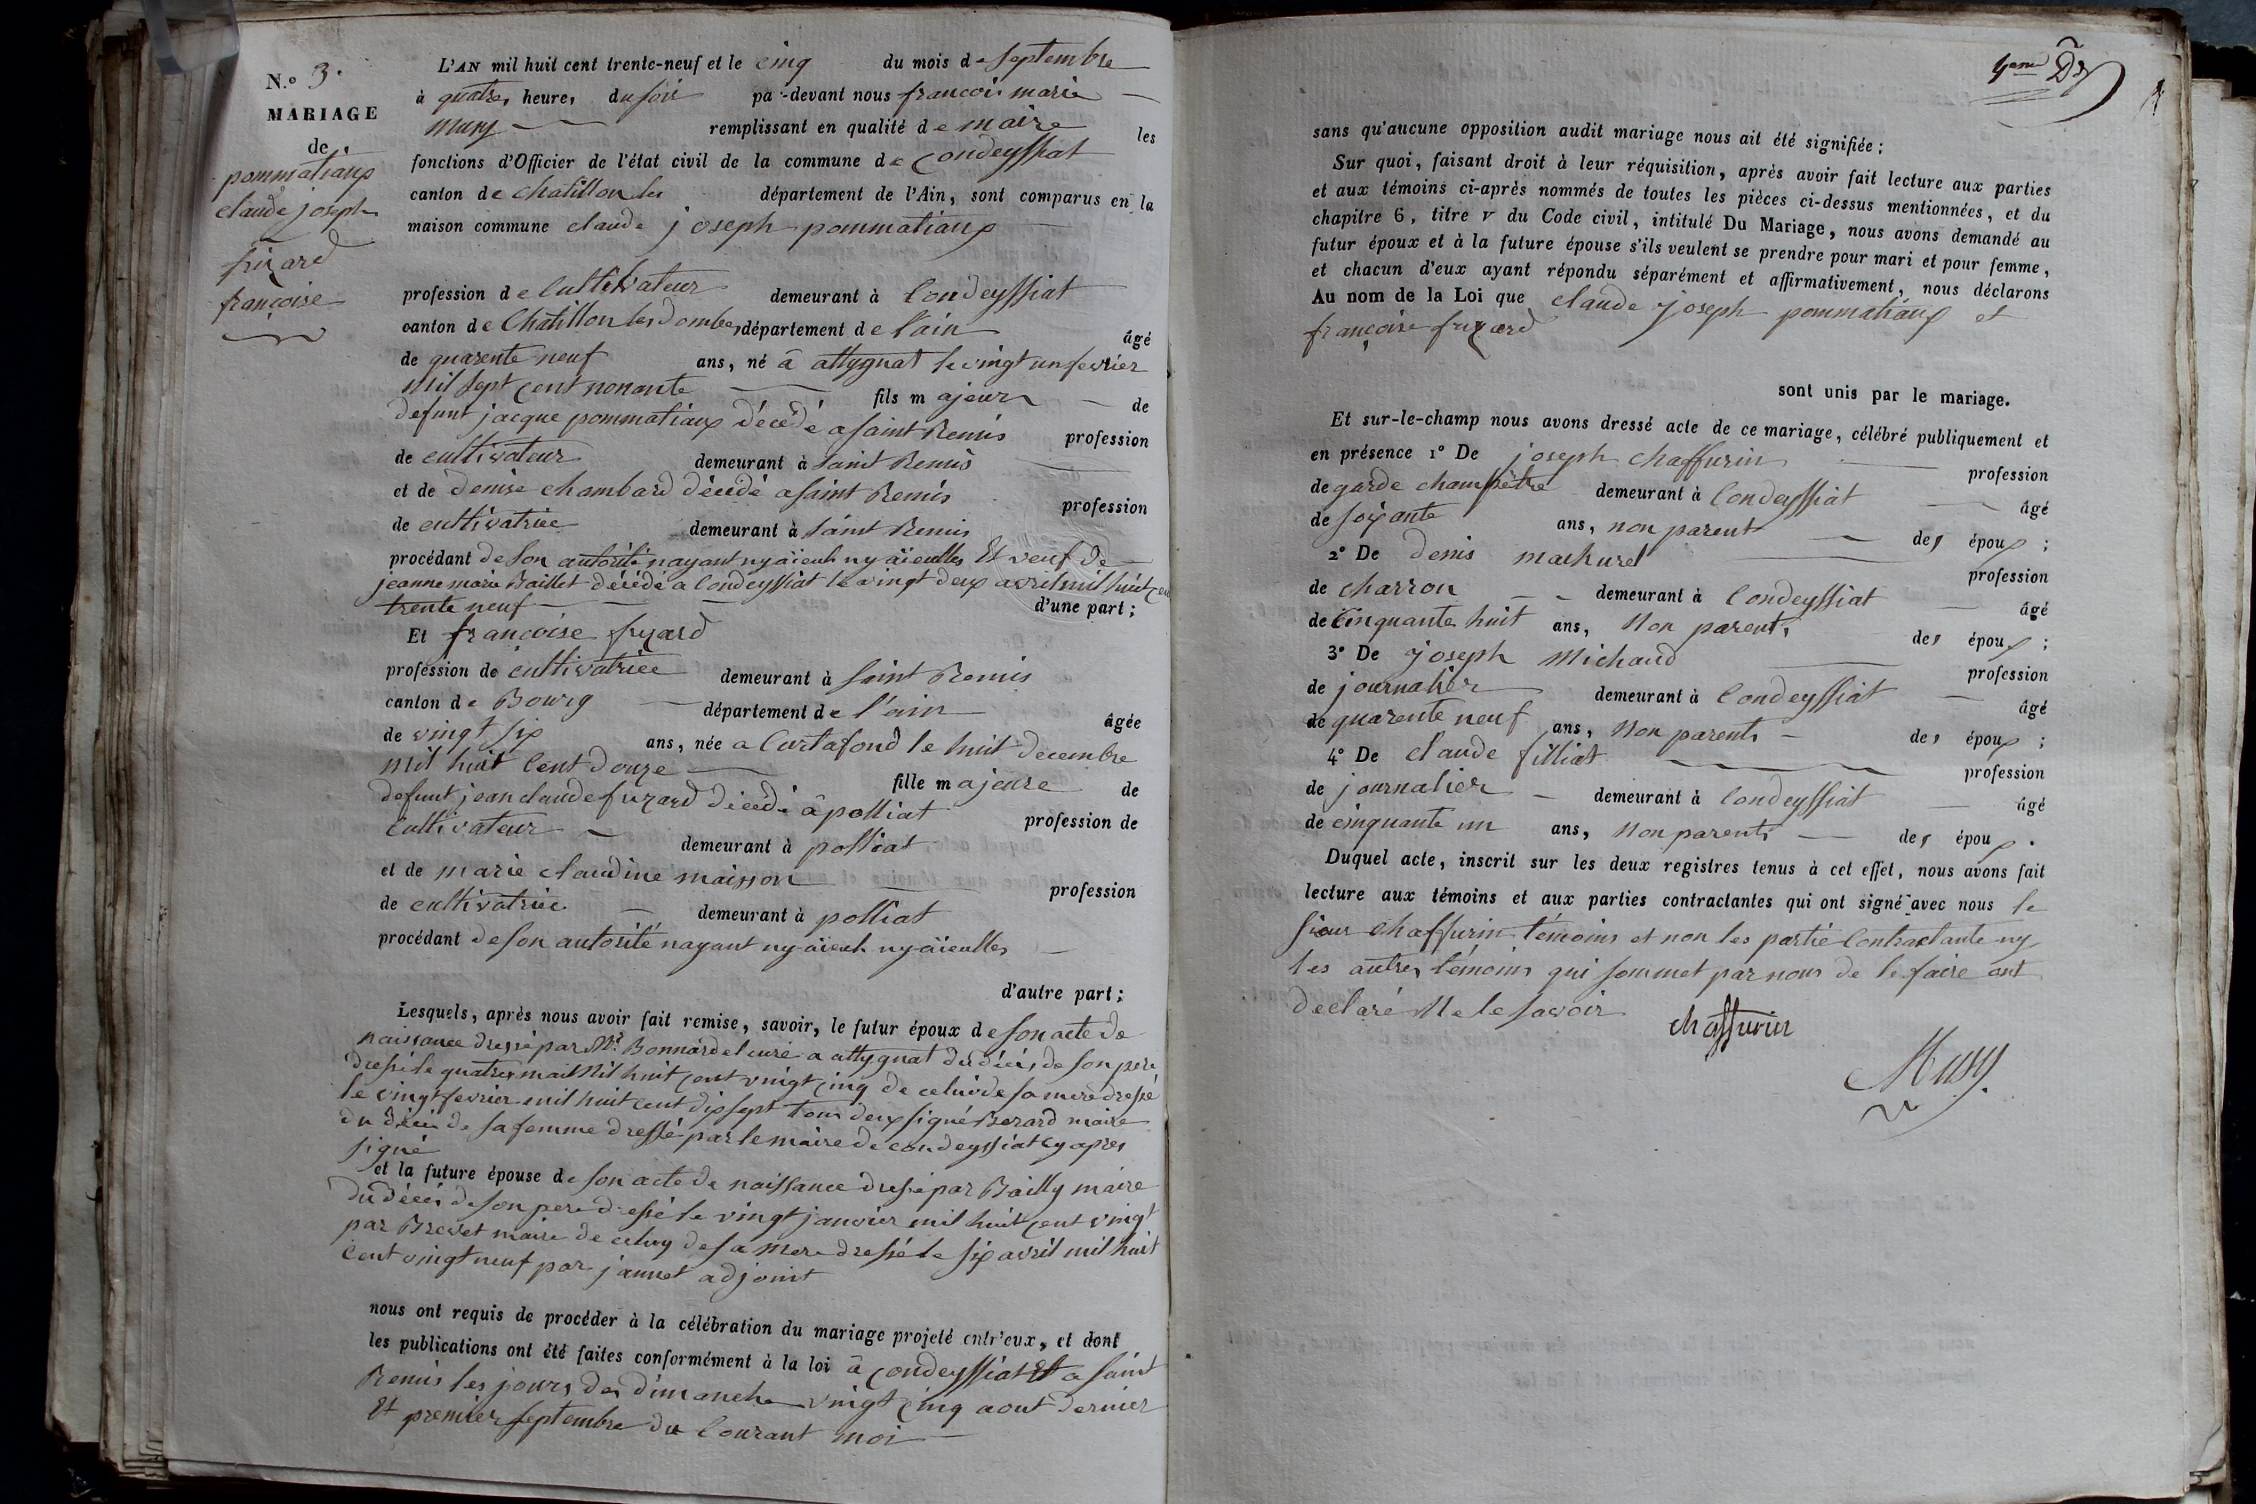 N.o 3.
MARIAGE
de
pommatiaux
claude joseph
frizard
françoise
L'AN mil huit cent trente-neuf et le cinq du mois de septembre
à quatres heures du soir par-devant nous francois marie
Musy remplissant en qualité de maire les
fonctions d'Officier de l'état civil de la commune de Condeyssiat
canton de chatillon les département de l'Ain, sont comparus en la
maison commune claude joseph pommatiaux
profession de Cultivateur demeurant à Condeyssiat
canton de Chatillon les Dombes département de l'ain âgé
de quarente neuf ans, né à attygnat le vingt un fevrier
mil sept cent nonante fils majeur de
defunt jacque pommatiaux décédé a saint Remis profession
de cultivateur demeurant à saint Remis
et de denise chambard décédé a saint Remis profession
de cultivatrice demeurant à saint Remis
procédant de son autorité nayant ny aïeuls ny aïeulles Et veuf de
jeanne marie Baillet décédé a Condeyssiat le vingt deux avril mil huit cen
trente neuf d'une part ;
Et françoise fryzard
profession de cultivatrice demeurant à saint Remis
canton de Bourg département de l'ain âgée
de vingt six ans, née a Curtafond le huit decembre
mil huit Cent douze fille majeure de
defunt jean claude frizard décédé à polliat profession de
Cultivateur demeurant à polliat
et de marie claudine maisson profession
de cultivatrice demeurant à polliat
procédant de son autorité nayant ny aïeuls ny aïeulles
d'autre part ;
Lesquels, après nous avoir fait remise, savoir, le futur époux de son acte de
naissance dressé par Mr Bonnardel curé a attygnat du décès de son pere
dressé le quatres mai Mil huit cent vingt cinq de celui de sa mere dressé
le vingt fevrier mil huit cent dix sept tous deux signé Berard maire
du décès de sa femme dressé par le maire de condeyssiat cy apres
signé
et la future épouse de son acte de naissance dressé par Bailly maire
du décès de son pere dressé le vingt janvier mil huit cent vingt
par Brevet maire de celuy de sa Mere dressé le six avril mil huit
Cent vingt neuf par jannet adjoint
nous ont requis de procéder à la célébration du mariage projeté entr'eux, et dont
les publications ont été faites conformément à la loi à Condeyssiat Et a saint
Remis les jours des dimanche vingt cinq aout dernier
Et premier septembre du Courant moi
sans qu'aucune opposition audit mariage nous ait été signifiée ;
Sur quoi, faisant droit à leur réquisition, après avoir fait lecture aux parties
et aux témoins ci-après nommés de toutes les pièces ci-dessus mentionnées, et du
chapitre 6, titre V du Code civil, intitulé Du Mariage, nous avons demandé au
futur époux et à la future épouse s'ils veulent se prendre pour mari et pour femme,
et chacun d'eux ayant répondu séparément et affirmativement, nous déclarons
Au nom de la Loi que claude joseph pommatiaux et
françoise fryzard
sont unis par le mariage.
Et sur-le-champ nous avons dressé acte de ce mariage, célébré publiquement et
en présence 1° De joseph chaffurin profession
de garde champêtre demeurant à Condeyssiat âgé
de soixante ans, non parent des époux ;
2° De denis machurel profession
de charron demeurant à Condeyssiat âgé
de Cinquante huit ans, Non parents des époux ;
3° De joseph Michaud profession
de journalier demeurant à Condeyssiat âgé
de quarente neuf ans, Non parents des époux ;
4° De claude filliat profession
de journalier demeurant à Condeyssiat âgé
de cinquante un ans, Non parents des époux .
Duquel acte, inscrit sur les deux registres tenus à cet effet, nous avons fait
lecture aux témoins et aux parties contractantes qui ont signé avec nous le
sieur chaffurin témoins et non les partie Contractante ny
les autres témoins qui sommet par nous de le faire ont
declaré Ne le savoir
chaffurin
Musy